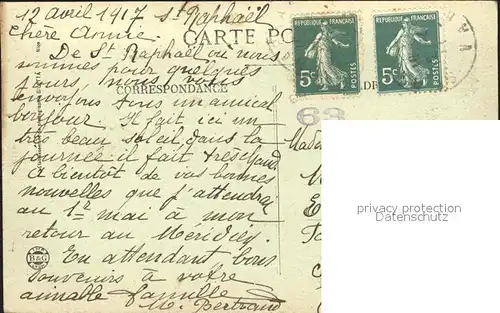 12 avril 1917 St Raphaël
Chère Annie.
CARTE PO
De St Raphaël ou nous
sommes pour quelques
jours nous vous
CORRESPONDANCE
envoyons tous un amical
bonjour. Il fait ici un
très beau soleil dans la
journée il fait très chaud.
A bientôt de vos bonnes
nouvelles que j'attendrai
au 1er mai à mon
retour au
En attendant bons
souvenirs à votre
aimable famille
M. Bertrand
5c POSTES
5c POSTES
63
DR
Mada
privacy protection
Datenschutz
B&G